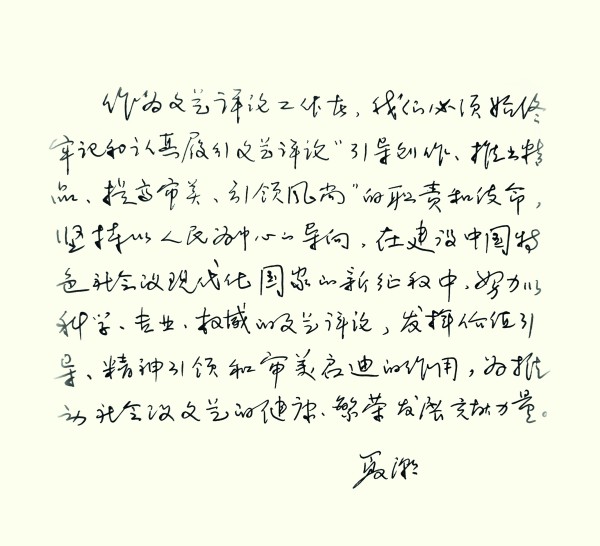 作为文艺评论工作者，我们必须始终
牢记和认真履行文艺评论“引导创作、推出精
品、提高审美、引领风尚”的职责和使命，
坚持以人民为中心的导向，在建设中国特
色社会主义现代化国家的新征程中，努力以
科学、专业、权威的文艺评论，发挥价值引
导、精神引领和审美启迪的作用，为推
动社会主义文艺的健康、繁荣发展贡献力量。